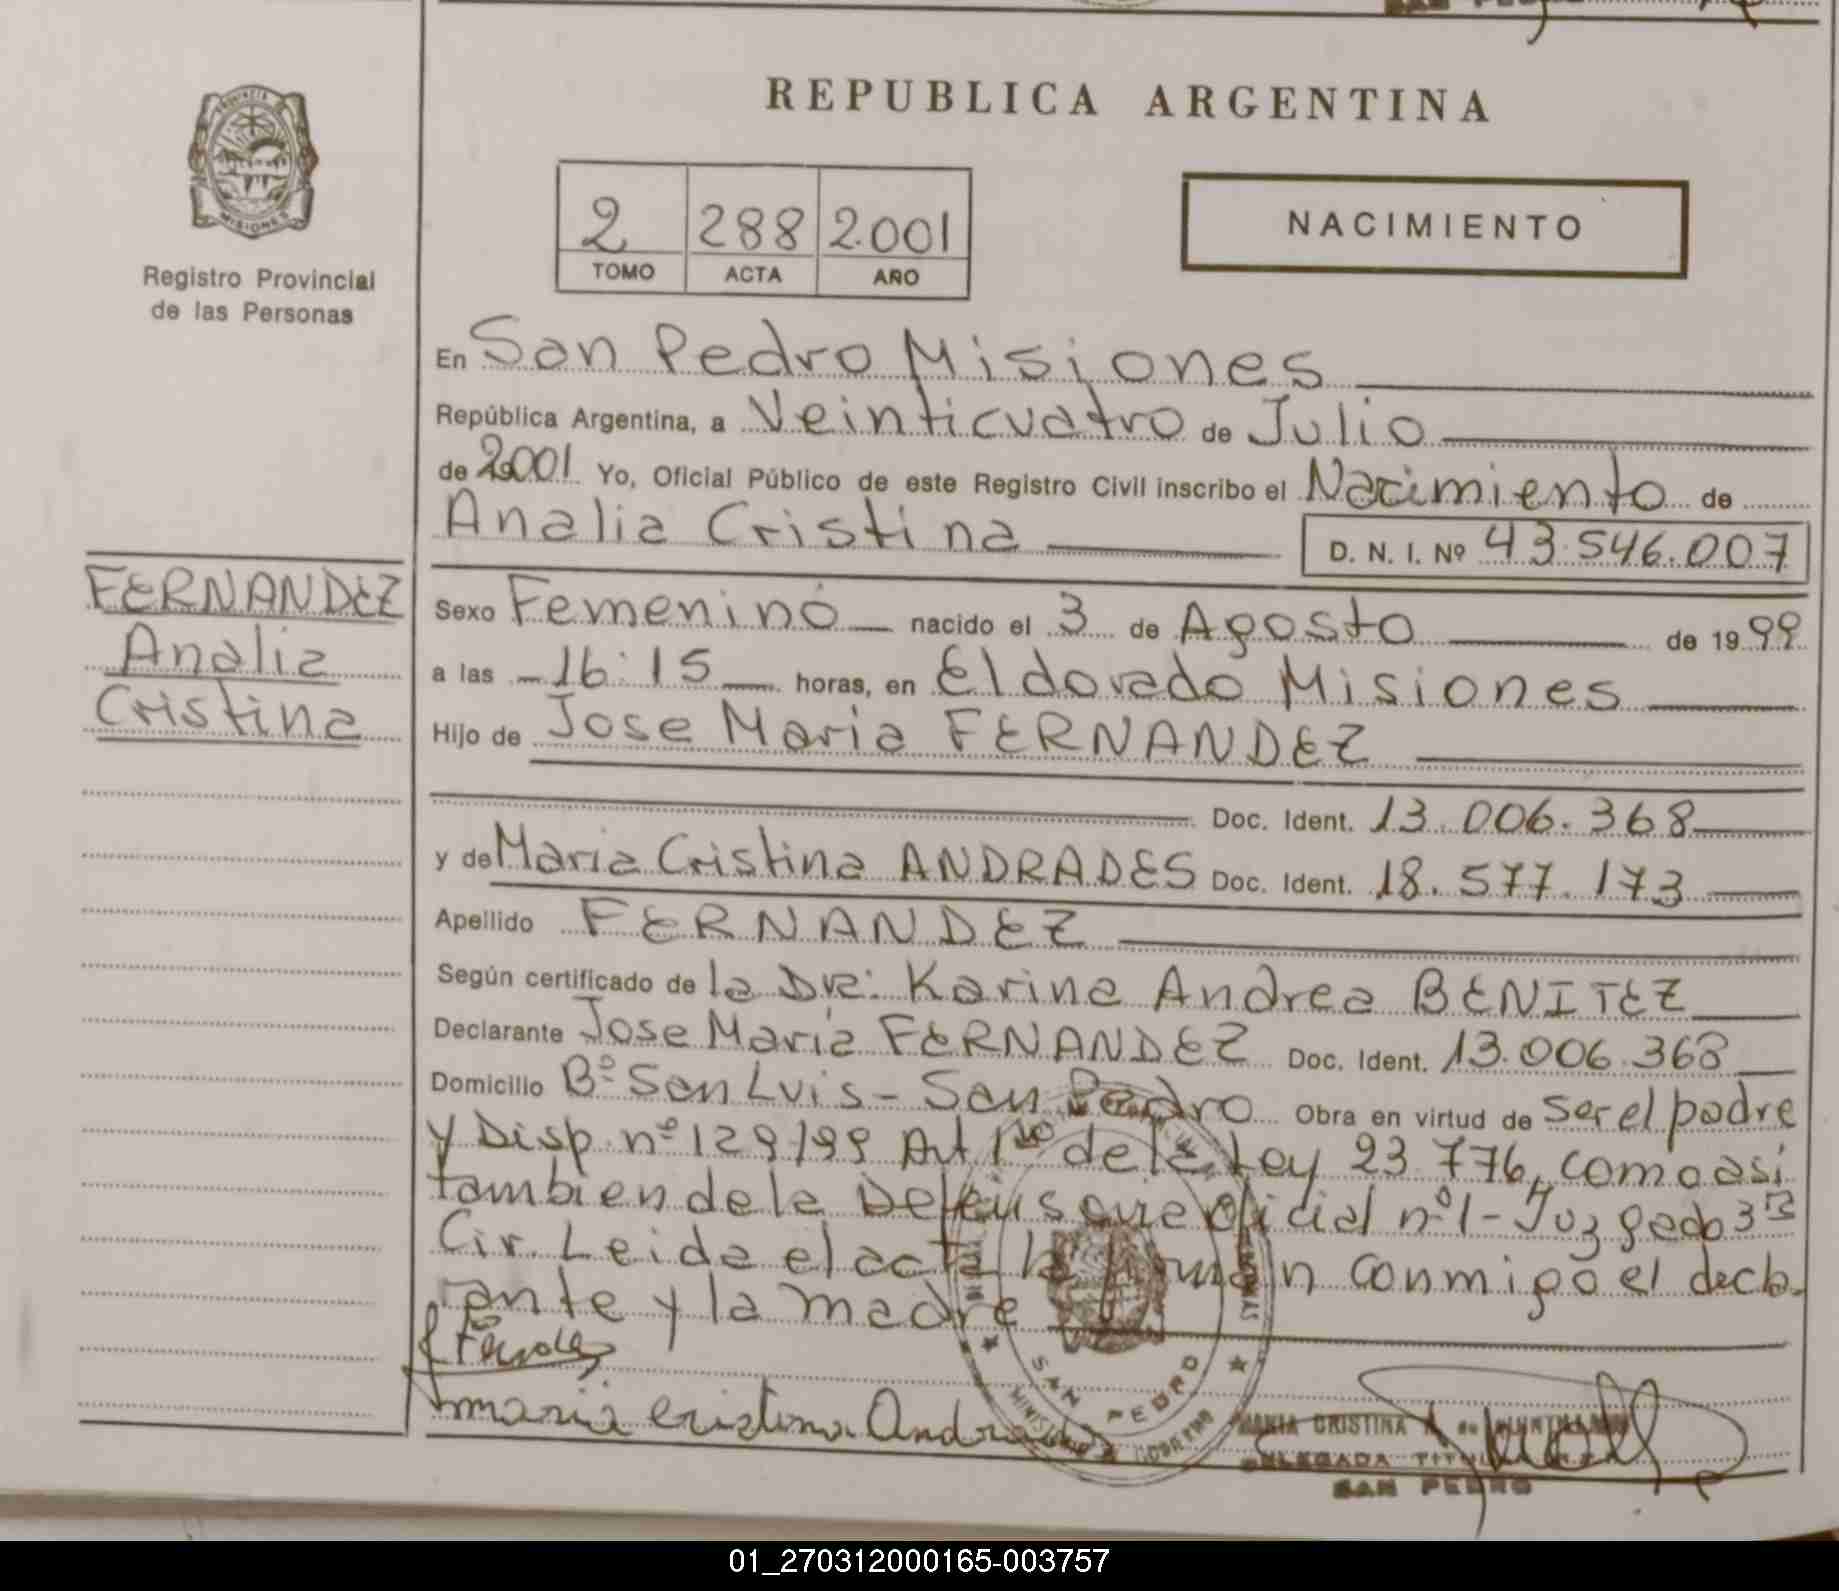 REPUBLICA ARGENTINA
PROVINCIA DE
MISIONES
Registro Provincial
de las Personas
2 288 2.001
TOMO ACTA AÑO
NACIMIENTO
En San Pedro Misiones
República Argentina, a Veinticuatro de Julio
de 2001 Yo, Oficial Público de este Registro Civil inscribo el Nacimiento de
Analia Cristina
D. N. I. Nº 43.546.007
FERNANDEZ
Analia
Cristina
Sexo Femenino nacido el 3 de Agosto de 1999
a las 16:15 horas, en Eldorado Misiones
Hijo de Jose Maria FERNANDEZ
Doc. Ident. 13.006.368
y de Maria Cristina ANDRADES Doc. Ident. 18.577.173
Apellido FERNANDEZ
Según certificado de la Dra: Karina Andrea BENITEZ
Declarante Jose Maria FERNANDEZ Doc. Ident. 13.006.368
Domicilio Bº San Luis - San Pedro Obra en virtud de ser el padre
y Disp. nº 129/99 Art 1º de la Ley 23.776, como asi
tambien de la Defensoria oficial nº 1 - Juzgado 3ª
Cir. Leida el acta la firman conmigo el decla-
rante y la madre
maria cristina Andrades
SAN PEDRO
MARIA CRISTINA
DELEGADA TITULAR
SAN PEDRO
01_270312000165-003757